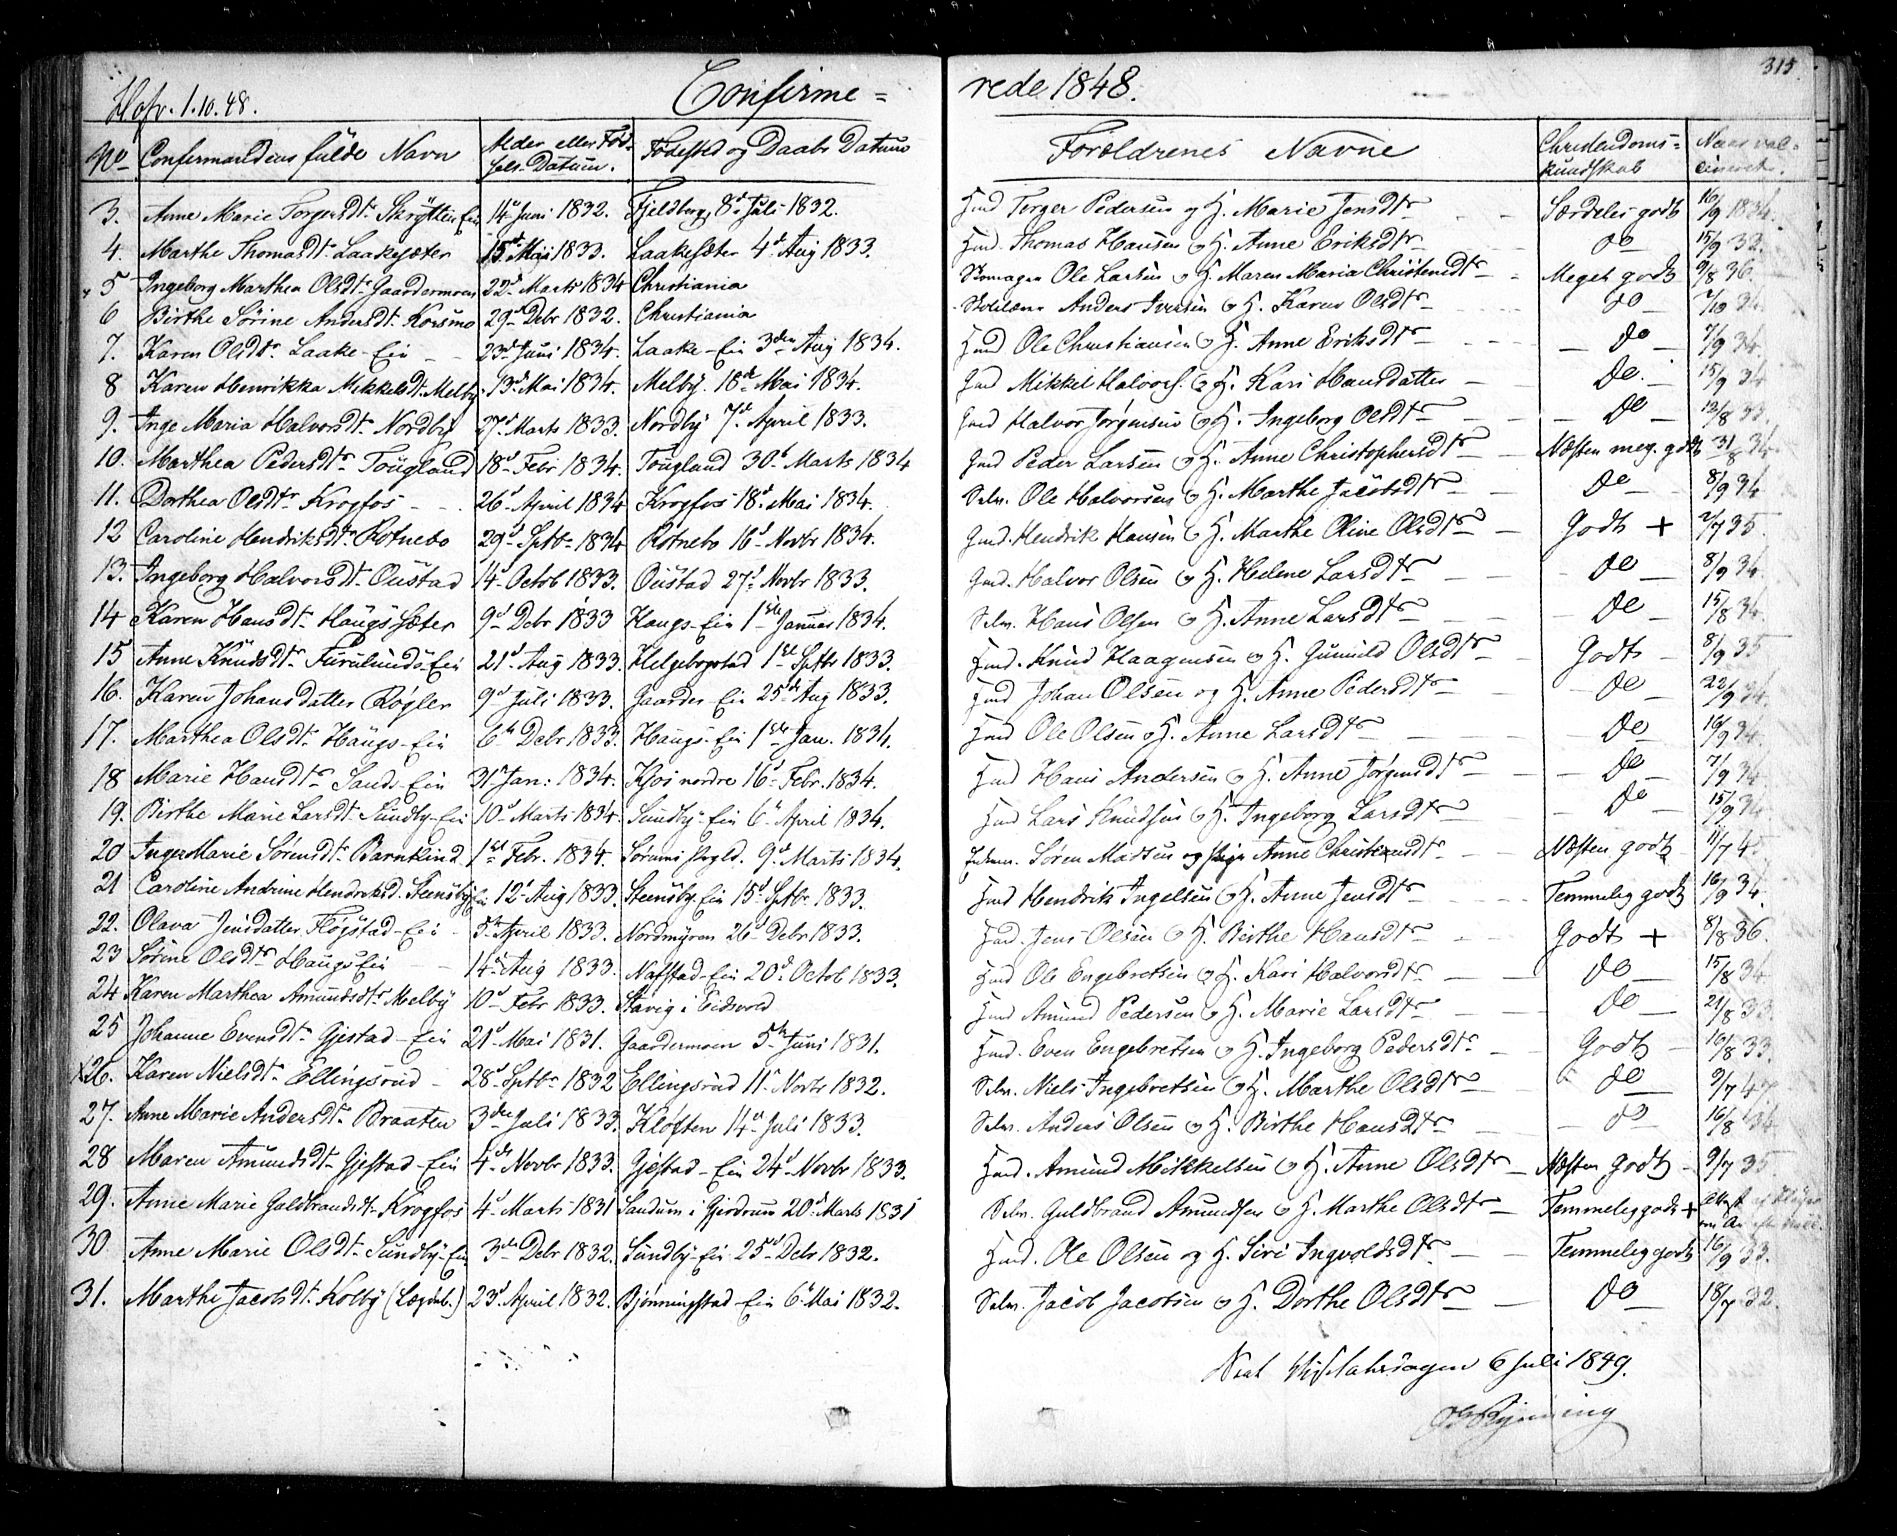 315.
Confirme = rede 1848.
1.10.48.
No Confirmandens fulde Navn Alder eller Fød- Fødested og Daabs Datum Forældrenes Navne Christendoms= Naar vac=
sels-Datum. kundskab cineret.
3. Anne Marie Torgersdtr. Skrytten Ei 14d Juni 1832. Fjeldberg, 8d Juli 1832. Hmd Torger Pedersen og H. Marie Jensdtr Særdeles godt 16/9 1834.
4. Marthe Thomasdtr. Laakesæter 15d Mai 1833. Laakesæter 4d Aug 1833. Hmd. Thomas Hansen og H. Anne Eriksdtr do 15/9 32.
5 Ingeborg Marthea Olsdtr Gaardermoen 22d Marts 1834 Christiania Skomager Ole Larsen og H. Maren Maria Christensdtr Meget godt 9/8 36.
6 Birthe Sørine Andersdtr. Korsmo 29d Debr 1832. Christiania Anders Iversen og H. Karen Olsdtr do 7/10 34.
7. Karen Olsdtr Laake-Ei 23d Juni 1834. Laake-Ei 3den Aug 1834. Hmd Ole Christiansen og H. Anne Eriksdtr do 7/9 34.
8 Karen Henrikka Mikkelsdtr. Melby 13d Mai 1834. Melby. 18d Mai 1834. Gmd Mikkel Halvors. og H. Kari Hansdatter do. 15/9 34
9. Inge Maria Halvorsdtr. Nordby 27d Marts 1833. Nordby 7d April 1833. Gmd Halvor Jørgensen og H. Ingeborg Olsdtr do 13/8 33.
10. Marthea Pedersdtr Tougland 18d Febr 1834. Tougland 30d Marts 1834 Gmd Peder Larsen og H. Anne Christophersdtr Næsten meg. godt 31/8 34.
11. Dorthea Olsdtr Krogfos 26d April 1834 Krogfos 18d Mai 1834. Selv. Ole Halvorsen og H. Marthe Jacobsdtr do 8/9 34
12 Caroline Hendriksdtr. Rotnebo 29d Sptbr 1834 Rotnebo 16d Novbr 1834. Gmd. Hendrik Hansen og H. Marthe Oline Olsdtr Godt + 2/7 35.
13. Ingeborg Halvorsdtr. Oustad 14d Octob 1833. Oustad 27d Novbr 1833. Gmd. Halvor Olsen og H. Helene Larsdtr do 8/9 34.
14 Karen Hansdtr Haugsæter 9d Debr 1833 Haugs-Ein 1ste Januar 1834. Selv. Hans Olsen og H. Anne Larsdtr do 15/8 34.
15 Anne Knudsdtr. Furulunds-Ei 21d Aug 1833. Helgebostad 1ste Sptbr 1833. Hmd. Knud Haagensen og H. Gunnild Olsdtr Godt 8/9 35
16. Karen Johansdatter Røgler 9d Juli 1833. Gaarder Ein 25de Aug 1833. Hmd Johan Olsen og H. Anne Pedersdtr do 22/9 34.
17. Marthea Olsdtr. Haugs-Ein 6te Debr 1833. Haugs-Ein 1ste Jan. 1834. Hmd Ole Olsen og H. Anne Larsdtr do 16/9 34.
18 Marie Hansdtr Sands-Ein 31te Jan: 1834. Kjos nordre 16d Febr. 1834. Hmd Hans Andersen og H. Anne Jørgensdtr do 7/9 34
19. Birthe Marie Larsdtr. Sundby-Ein 10d Marts 1834. Sundby-Ein 6te April 1834. Hmd Lars Knudsen og H. Ingeborg Larsdtr do 15/9 34.
20 Inger Marie Sørensdtr. Barnklind 1ste Febr. 1834. Sørums Prgld. 9d Marts 1834. Søren Madsen og Pige Anne Christensdtr Næsten godt 11/7 45
21 Caroline Andrine Hendriksd. Steensby Ein 12d Aug 1833. Steensby-Ein 15d Sptbr. 1833. Hmd Hendrik Ingelsen og H. Anne Jensdtr Temmelig godt 16/9 34.
22. Olava Jensdatter Fløgstad-Ei 5te April 1833. Nordmyren 26d Debr 1833. Hmd. Jens Olsen og H. Birthe Hansdtr Godt + 8/8 36.
23 Sørine Olsdtr Haugs Ein 14d Aug 1833. Nafstad-Ein 20d Octob 1833. Hmd Ole Engebretsen og H. Kari Halvorsdtr do 15/8 34
24 Karen Marthea Amundsdtr Melby 10d Febr 1833. Stavig i Eidsvold Hmd Amund Pedersen og H. Marie Larsdtr do 21/8 33.
25 Johanne Evensdtr. Gjestad-Ein 21d Mai 1831. Gaardermoen 5te Juni 1831. Hmd. Even Engebretsen og H. Ingeborg Pedersdtr Godt 16/8 33.
x26. Karen Nielsdtr. Ellingsrud 28d Sptbr 1832 Ellingsrud 11te Novbr 1832. Selv. Niels Ingebretsen og H. Marthe Olsdtr do 9/7 47.
27. Anne Marie Andersdtr. Braaten 3die Juli 1833. Kløften 14de Juli 1833. Selv. Anders Olsen og H. Birthe Hansdtr do 16/8 34
28 Maren Amundsdtr Gjestad-Ein 4de Novbr 1833. Gjestad-Ein 24d Novbr 1833. Hmd. Amund Mikkelsen og H. Anne Olsdtr Næsten Godt 9/7 35
29. Anne Marie Guldbrandsdtr Krogfos 4d Marts 1831 Sandum i Gjerdrum 20d Marts 1831 Selv. Guldbrand Amundsen og H. Marthe Olsdtr Temmelig godt +
30 Anne Marie Olsdtr. Sundby-Ein 3die Debr 1832. Sundby-Ein 25d Debr 1832. Hmd. Ole Olsen og H. Siri Ingvoldsdtr Temmelig godt 16/9 33.
31. Marthe Jacobsdtr. Kolby (Lægdsb.) 23d April 1832. Bjønningstad Ein 6d Mai 1832. Selv. Jacob Jacobsen og H. Dorthe Olsdtr do 18/7 32.
6 Juli 1849.
Rynning